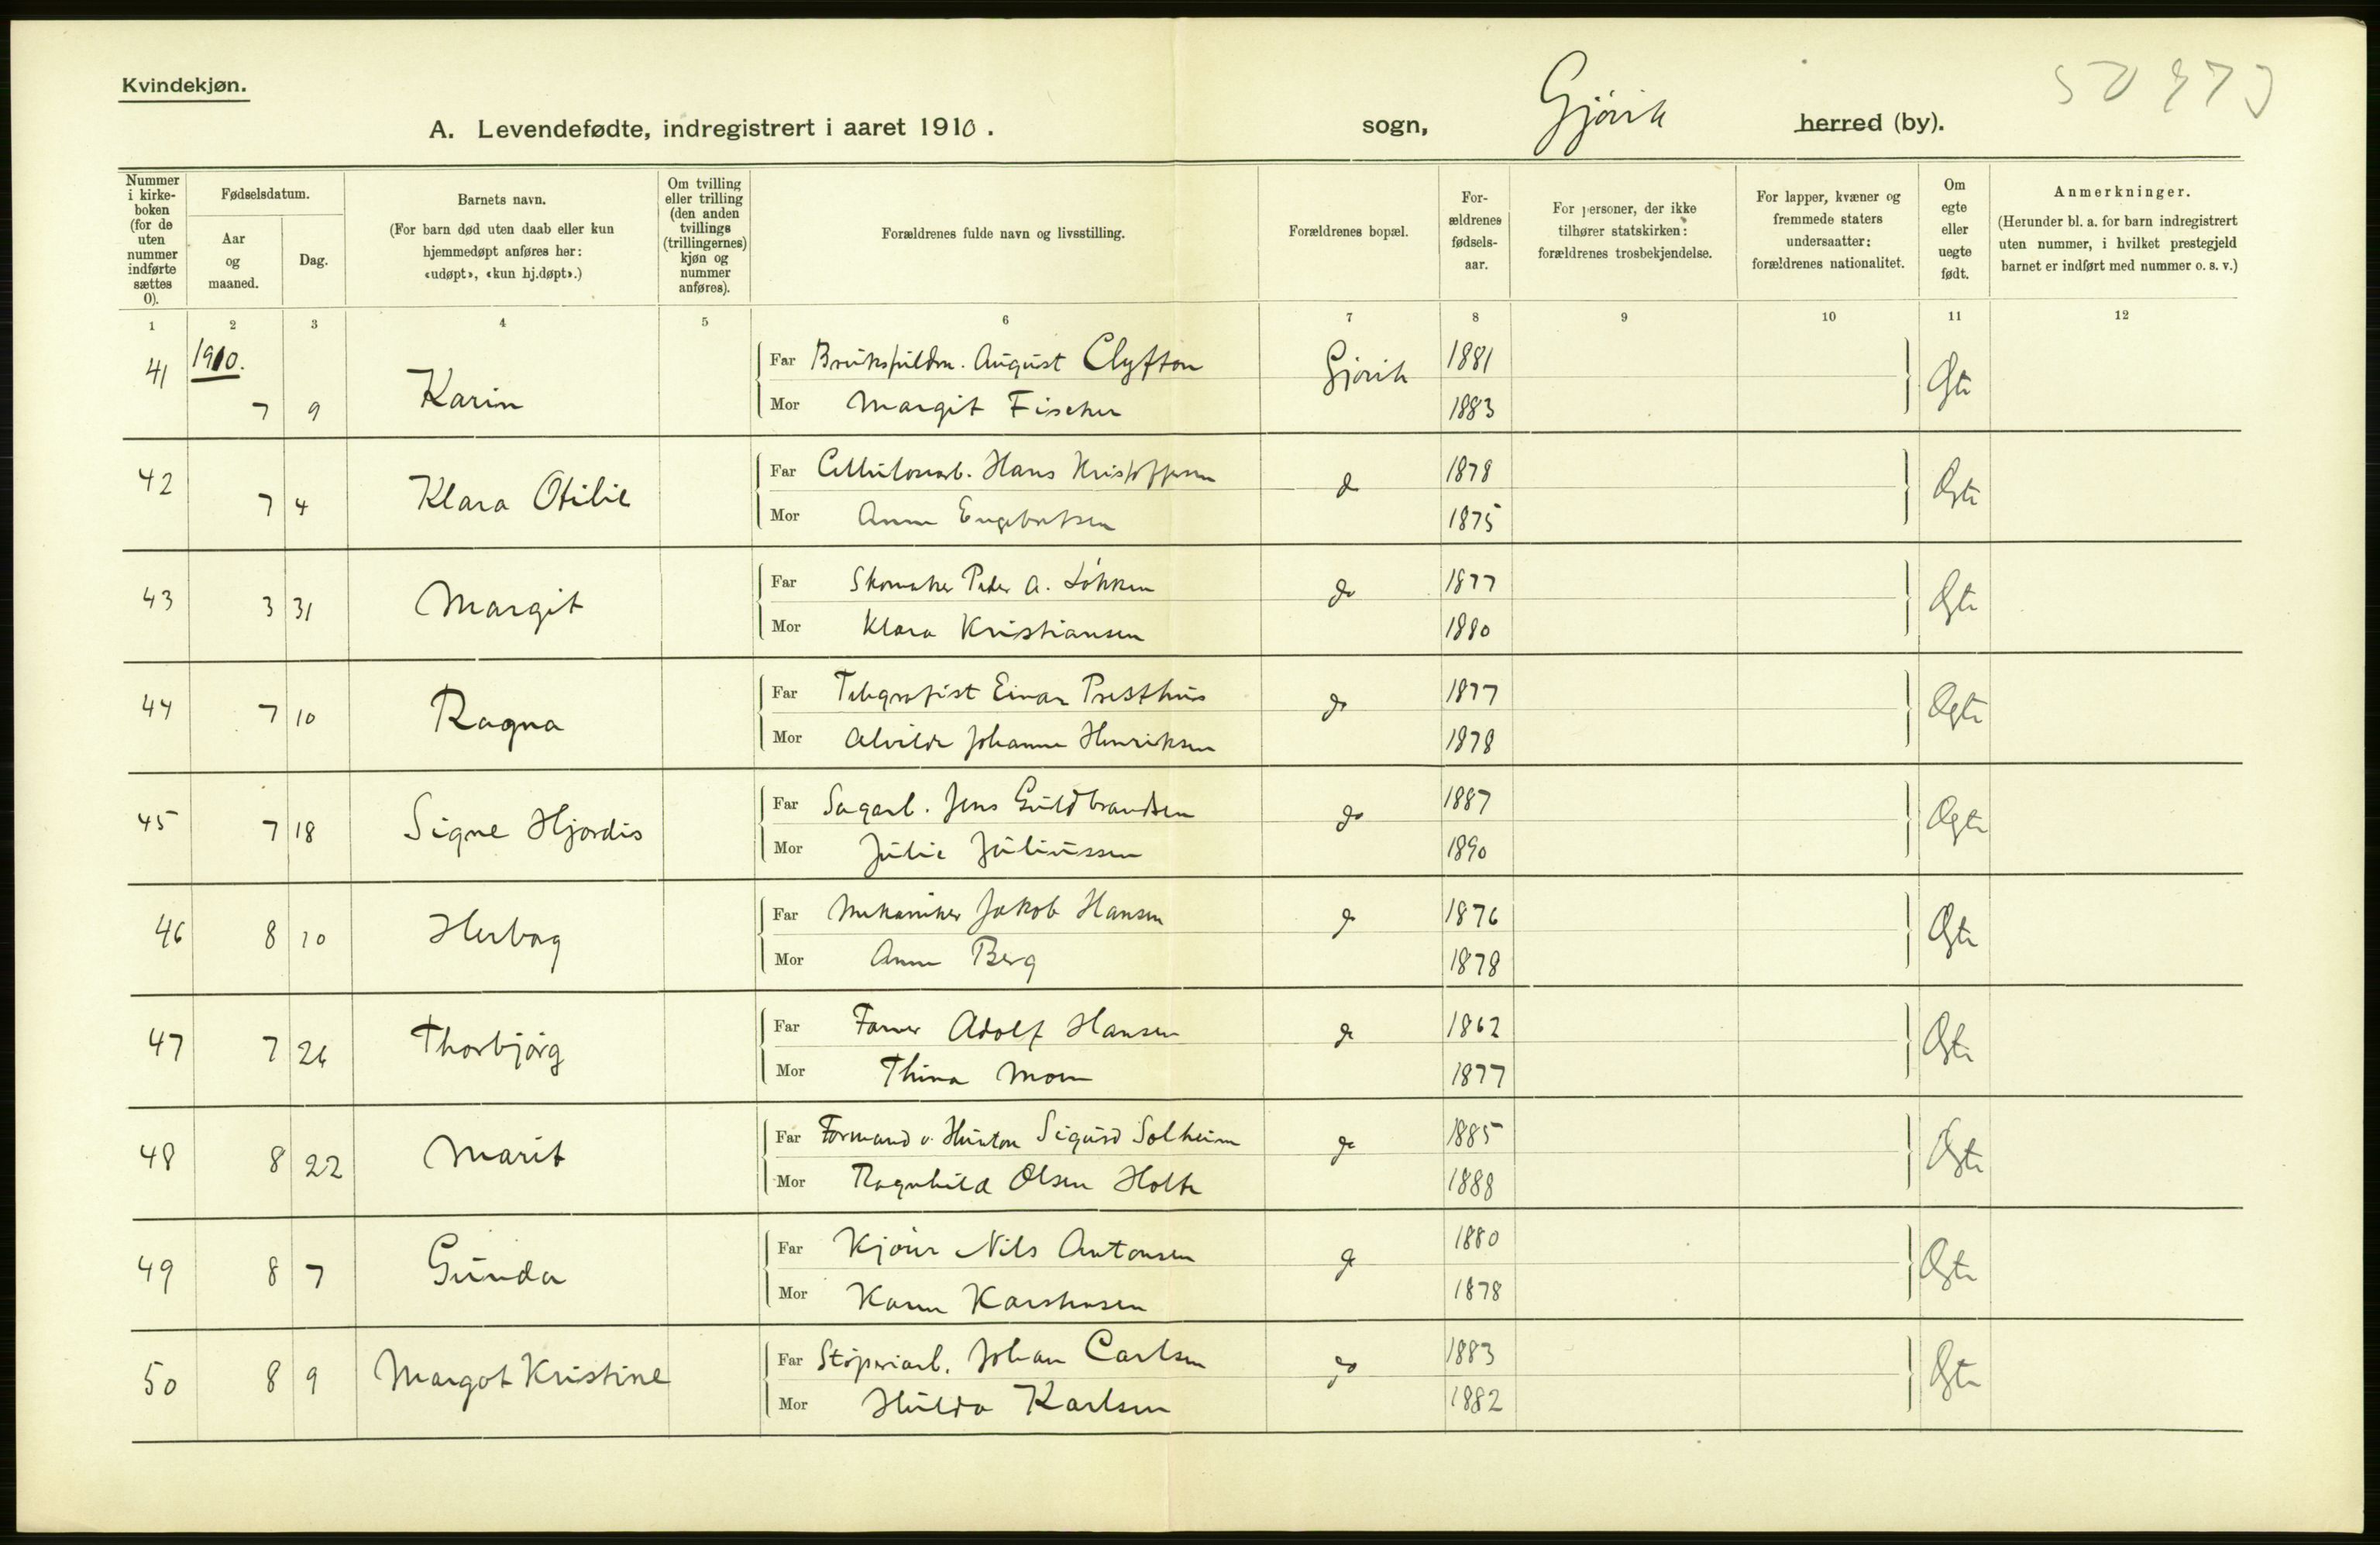 Kvindekjøn.
50473
A. Levendefødte, indregistrert i aaret 1910.
sogn, Gjövik herred (by).
Nummer i kirke-boken (for de uten nummer indførte sættes 0).
Fødselsdatum.
Aar og maaned.
Dag.
Barnets navn.
(For barn død uten daab eller kun hjemmedøpt anføres her: «udøpt», «kun hj.døpt».)
Om tvilling eller trilling (den anden tvillings (trillingernes) kjøn og nummer anføres).
Forældrenes fulde navn og livsstilling.
Forældrenes bopæl.
For-ældrenes fødsels-aar.
For personer, der ikke tilhører statskirken: forældrenes trosbekjendelse.
For lapper, kvæner og fremmede staters undersaatter: forældrenes nationalitet.
Om egte eller uegte født.
Anmerkninger.
(Herunder bl. a. for barn indregistrert uten nummer, i hvilket prestegjeld barnet er indført med nummer o. s. v.)
1 2 3 4 5 6 7 8 9 10 11 12
1910.
41 7 9 Karin Far Bruksfuldm. August Clyfton Gjövik 1881 Egte
Mor Margit Fischer 1883
42 7 4 Klara Otilie Far Cellulosearb. Hans Kristoffersen do 1878 Egte
Mor Anne Engebretsen 1875
43 3 31 Margit Far Skomaker Peder A. Lökken do 1877 Egte
Mor Klara Kristiansen 1880
44 7 10 Ragna Far Telegrafist Einar Presthus do 1877 Egte
Mor Alvilde Johanne Henriksen 1878
45 7 18 Signe Hjordis Far Sagarb. Jens Guldbrandsen do 1887 Egte
Mor Julie Juliussen 1890
46 8 10 Herbog Far Mekaniker Jakob Hansen do 1876 Egte
Mor Anne Berg 1878
47 7 26 Thorbjörg Far Adolf Hansen do 1862 Egte
Mor Thina Moen 1877
48 8 22 Marit Far Formand v. Hunton Sigurd Solheim do 1885 Egte
Mor Ragnhild Olsen Holte 1888
49 8 7 Gunda Far Kjörer Nils Antonsen do 1880 Egte
Mor Karen 1878
50 8 9 Margot Kristine Far Stöperiarb. Johan Carlsen do 1883 Egte
Mor Hulda Karlsen 1882